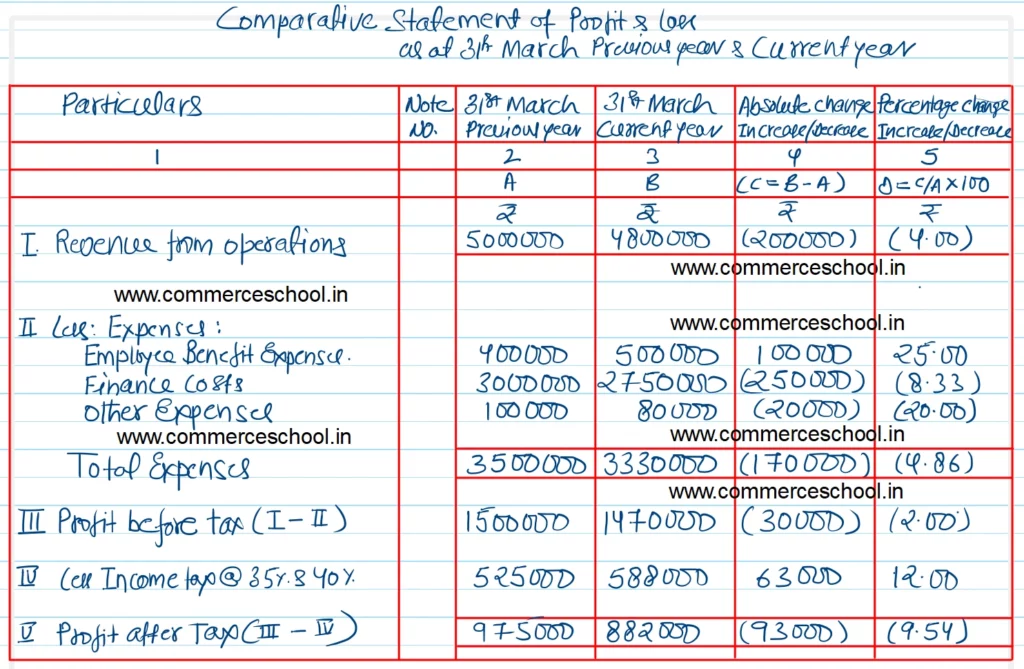 Comparative Statement of Profit & loss
as at 31st March Previous year & Current year
Particulars Note No. 31st March Previous year 31st March Current year Absolute change Increase/Decrease Percentage change Increase/Decrease
1 2 3 4 5
A B (C = B - A) D = C/A × 100
₹ ₹ ₹ ₹
I. Revenue from operations 5000000 4800000 (200000) (4.00)
www.commerceschool.in
www.commerceschool.in
II Less: Expenses: www.commerceschool.in
Employee Benefit Expenses. 400000 500000 100000 25.00
Finance Costs 3000000 2750000 (250000) (8.33)
Other Expenses 100000 80000 (20000) (20.00)
www.commerceschool.in www.commerceschool.in
Total Expenses 3500000 3330000 (170000) (4.86)
www.commerceschool.in
III Profit before tax (I - II) 1500000 1470000 (30000) (2.00)
IV Less Income tax @ 35%. & 40%. 525000 588000 63000 12.00
V Profit after Tax (III - IV) 975000 882000 (93000) (9.54)